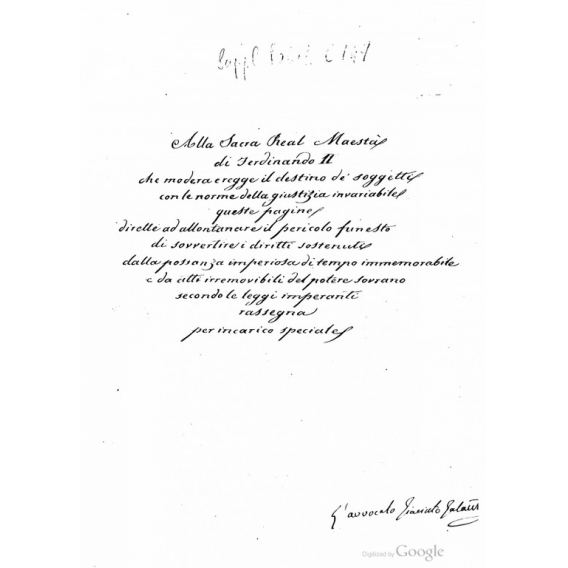 Suppl
Alla Sacra Real Maestà
di Ferdinando II
che modera e regge il destino de' soggetti
con le norme della giustizia invariabile
queste pagine
dirette ad allontanare il pericolo funesto
di sovvertire i diritti sostenuti
dalla possanza imperiosa di tempo immemorabile
e da atti irremovibili del potere sovrano
secondo le leggi imperanti
rassegna
per incarico speciale
L'avvocato Giacinto
Digitized by Google